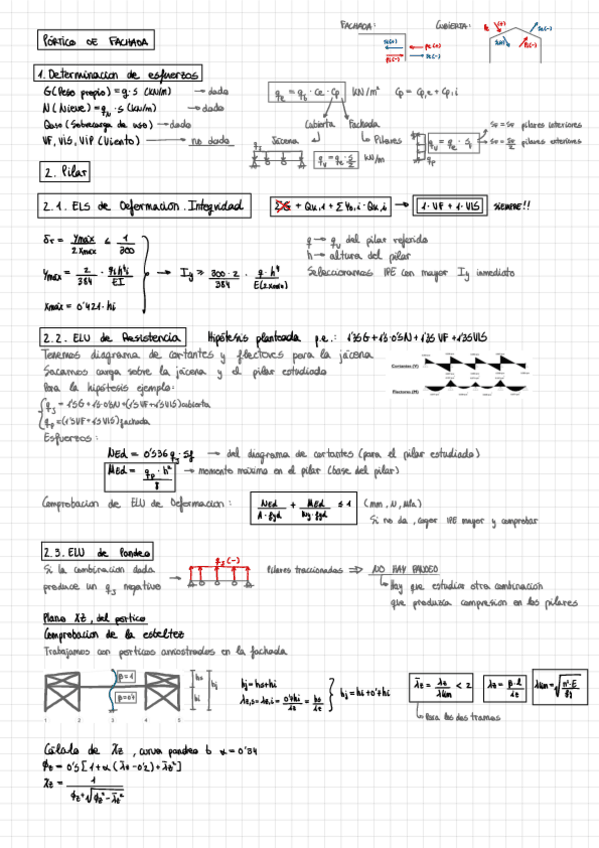 PÓRTICO DE FACHADA
FACHADA:
CUBIERTA:
1. Determinacion de esfuerzos
G (Peso propio) = g · s (kN/m) → dado
N (Nieve) = q_N · s (kN/m) → dado
Quso (Sobrecarga de uso) → dado
VF, VIS, VIP (Viento) → no dado
q_e = q_b · Ce · Cp kN/m² Cp = Cp,e + Cp,i
Cubierta Fachada
Jácena Pilares
kN/m
pilares interiores
pilares exteriores
2. Pilar
2.1. ELS de Deformacion. Integridad
1·VF + 1·VIS SIEMPRE!!
δr = ymax / 2xmax ≤ 1/300
Xmax = 0'421 · hi
q → q_p del pilar referido
h → altura del pilar
Seleccionamos IPE con mayor Iy inmediato
2.2. ELU de Resistencia Hipótesis planteada p.e.: 1'35G + 1'5·0'5N + 1'35VF + 1'35VIS
Tenemos diagrama de cortantes y flectores para la jácena
Sacamos carga sobre la jácena y el pilar estudiado
Para la hipótesis ejemplo:
Cortantes (V)
Flectores (M)
Esfuerzos:
NEd = 0'536 q_j · sf → del diagrama de cortantes (para el pilar estudiado)
MEd = q_p · h² / 8 → momento maximo en el pilar (base del pilar)
Comprobacion de ELU de Deformacion: NEd / A·fyd + MEd / Wy·fyd ≤ 1 (mm, N, MPa)
Si no da, coger IPE mayor y comprobar
2.3. ELU de Pandeo
Si la combinación dada
produce un q_j negativo
q_j (-)
Pilares traccionados ⇒ NO HAY PANDEO
Hay que estudiar otra combinación
que produzca compresion en los pilares
Plano XZ, del pórtico
Comprobacion de la esbeltez
Trabajamos con pórticos arriostrados en la fachada
β=1
β=0'7
hs
hi
hj
1 2 3 4 5
hj = hs + hi
hj = hi + 0'7hi
λ̄z = λz / λlim < 2
λz = β·l / iz
λlim = √(π²·E / fy)
Para los dos tramos
Cálculo de Xz, curva pandeo b α = 0'34
Φz = 0'5 [1 + α (λ̄z - 0'2) + λ̄z²]
Xz = 1 / (Φz + √(Φz² - λ̄z²))